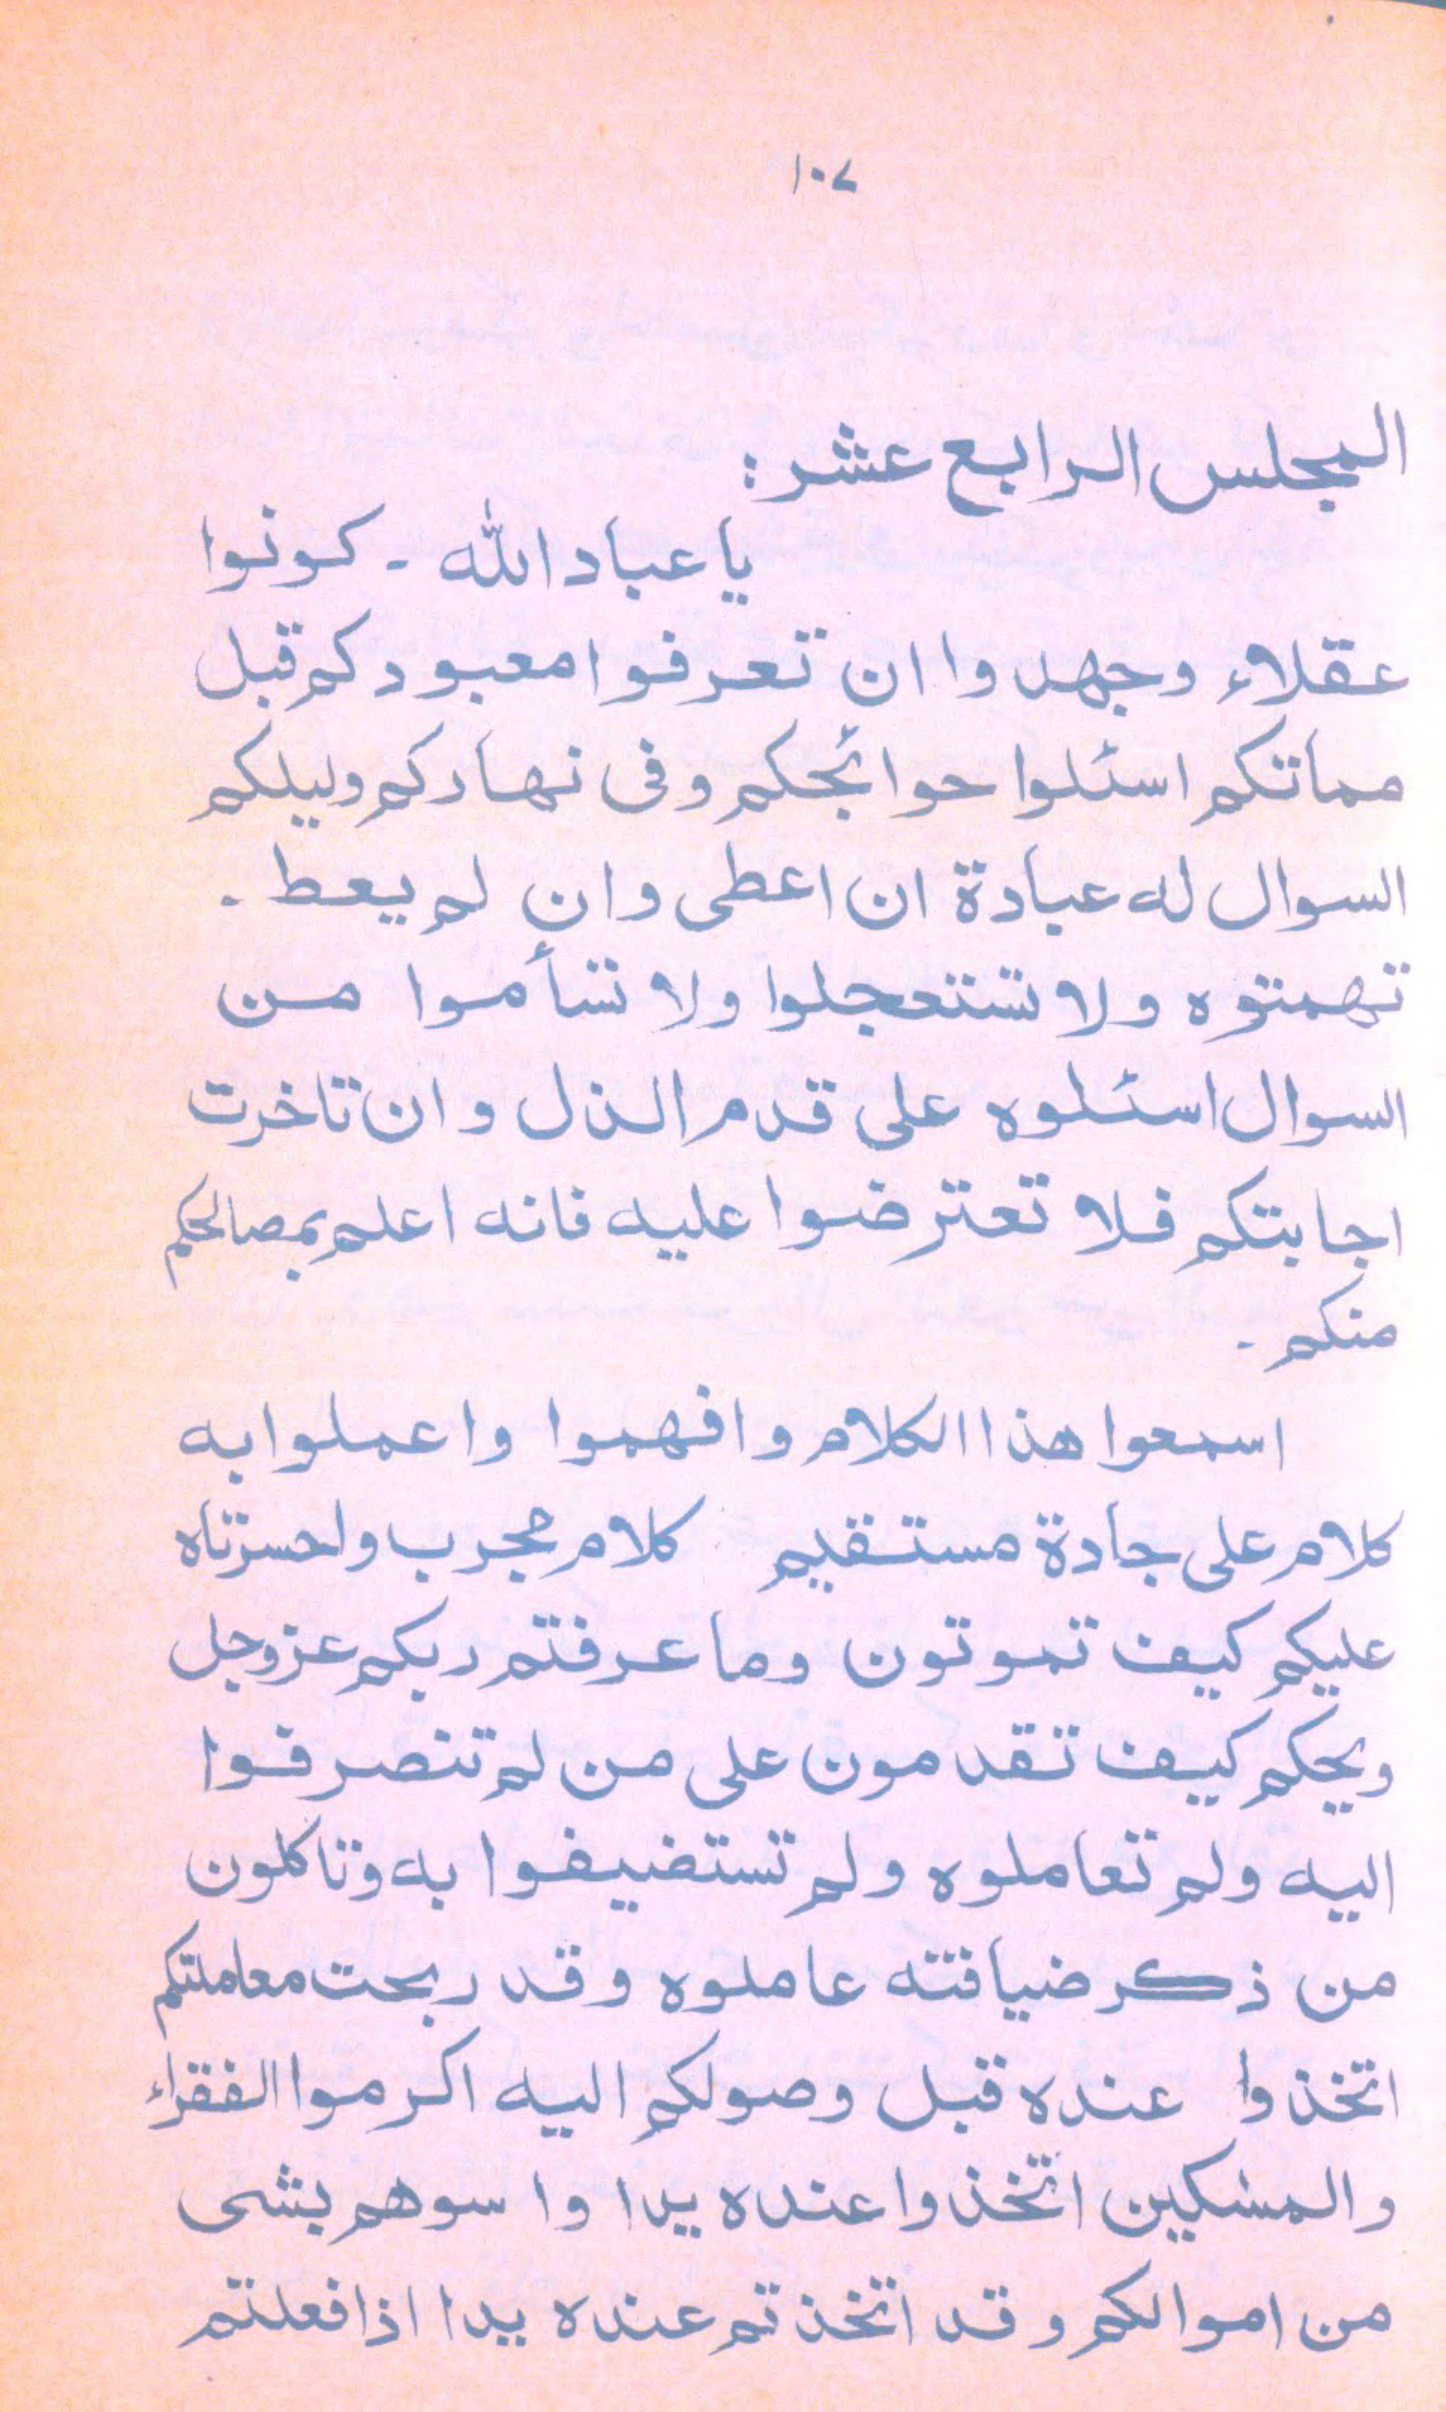 ١٠٧
المجلس الرابع عشر:
يا عباد الله - كونوا
عقلاء وجهدوا ان تعرفوا معبودكم قبل
مماتكم اسئلوا حوائجكم وفى نهاركم وليلكم
السوال له عبادة ان اعطى وان لم يعط -
تهمتوه ولا تستعجلوا ولا تسأموا من
السوال اسئلوه على قدم الذل وان تاخرت
اجابتكم فلا تعترضوا عليه فانه اعلم بمصالحكم
منكم -
اسمعوا هذا الكلام وافهموا واعملوا به
كلام على جادة مستقيم كلام مجرب واحسرتاه
عليكم كيف تموتون وما عرفتم ربكم عزوجل
ويحكم كيف تقدمون على من لم تنصرفوا
اليه ولم تعاملوه ولم تستضيفوا به وتاكلون
من ذكر ضيافته عاملوه وقد ربحت معاملتكم
اتخذوا عنده قبل وصولكم اليه اكرموا الفقراء
والمسكين اتخذوا عنده يدا واسوهم بشى
من اموالكم وقد اتخذتم عنده يدا اذا فعلتم